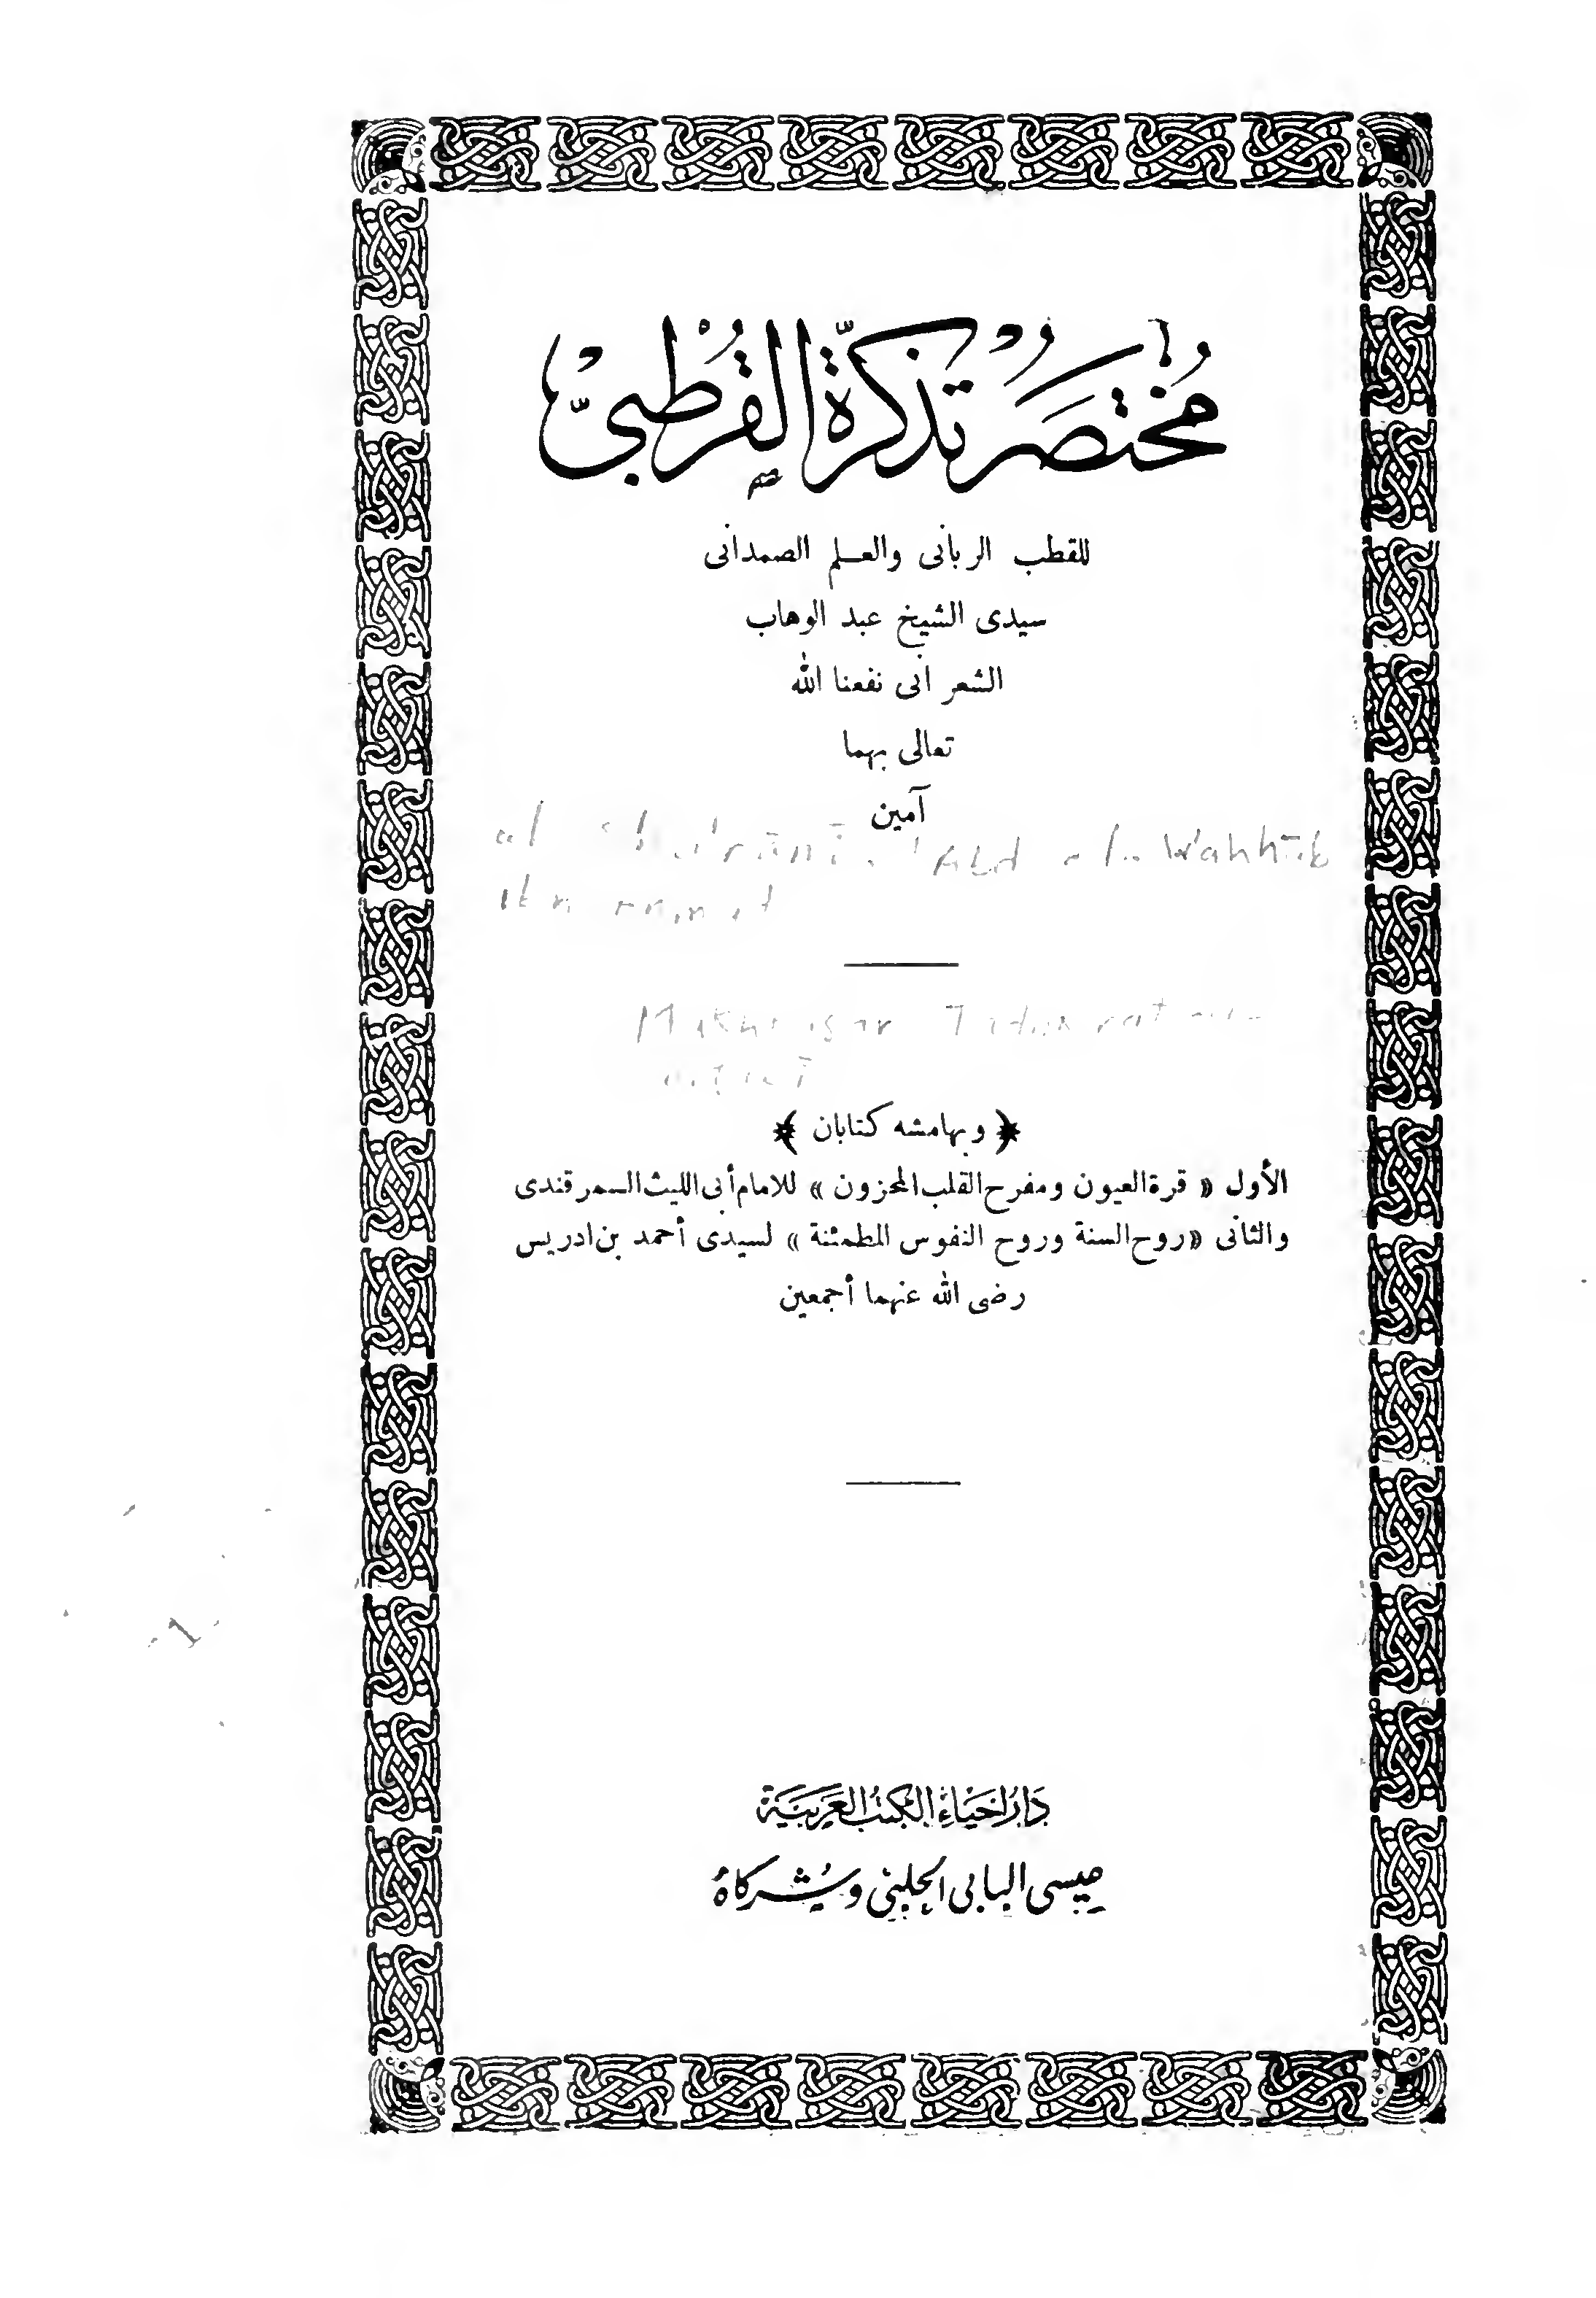 مُختصر تذكرة القُرطبيّ
للقطب الربانى والعـلم الصمدانى
سيدى الشيخ عبد الوهاب
الشعرانى نفعنا الله
تعالى بهما
آمين
al Sha'rānī, 'Abd al-Wahhāb
ibn
Tadhkirat
﴿ وبهامشه كتابان ﴾
الأول « قرة العيون ومفرح القلب المحزون » للامام أبى الليث السمرقندى
والثانى « روح السنة وروح النفوس المطمئنة » لسيدى أحمد بن ادريس
رضى الله عنهما أجمعين
دَارُ إِحْيَاءِ الكُتُبِ العَرَبِيَّةِ
عيسى البابى الحلبى وشركاهُ